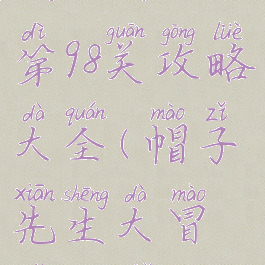 dì guān gōng lüè
第98关攻略
dà quán mào zǐ
大全(帽子
xiān shēng dà mào
先生大冒